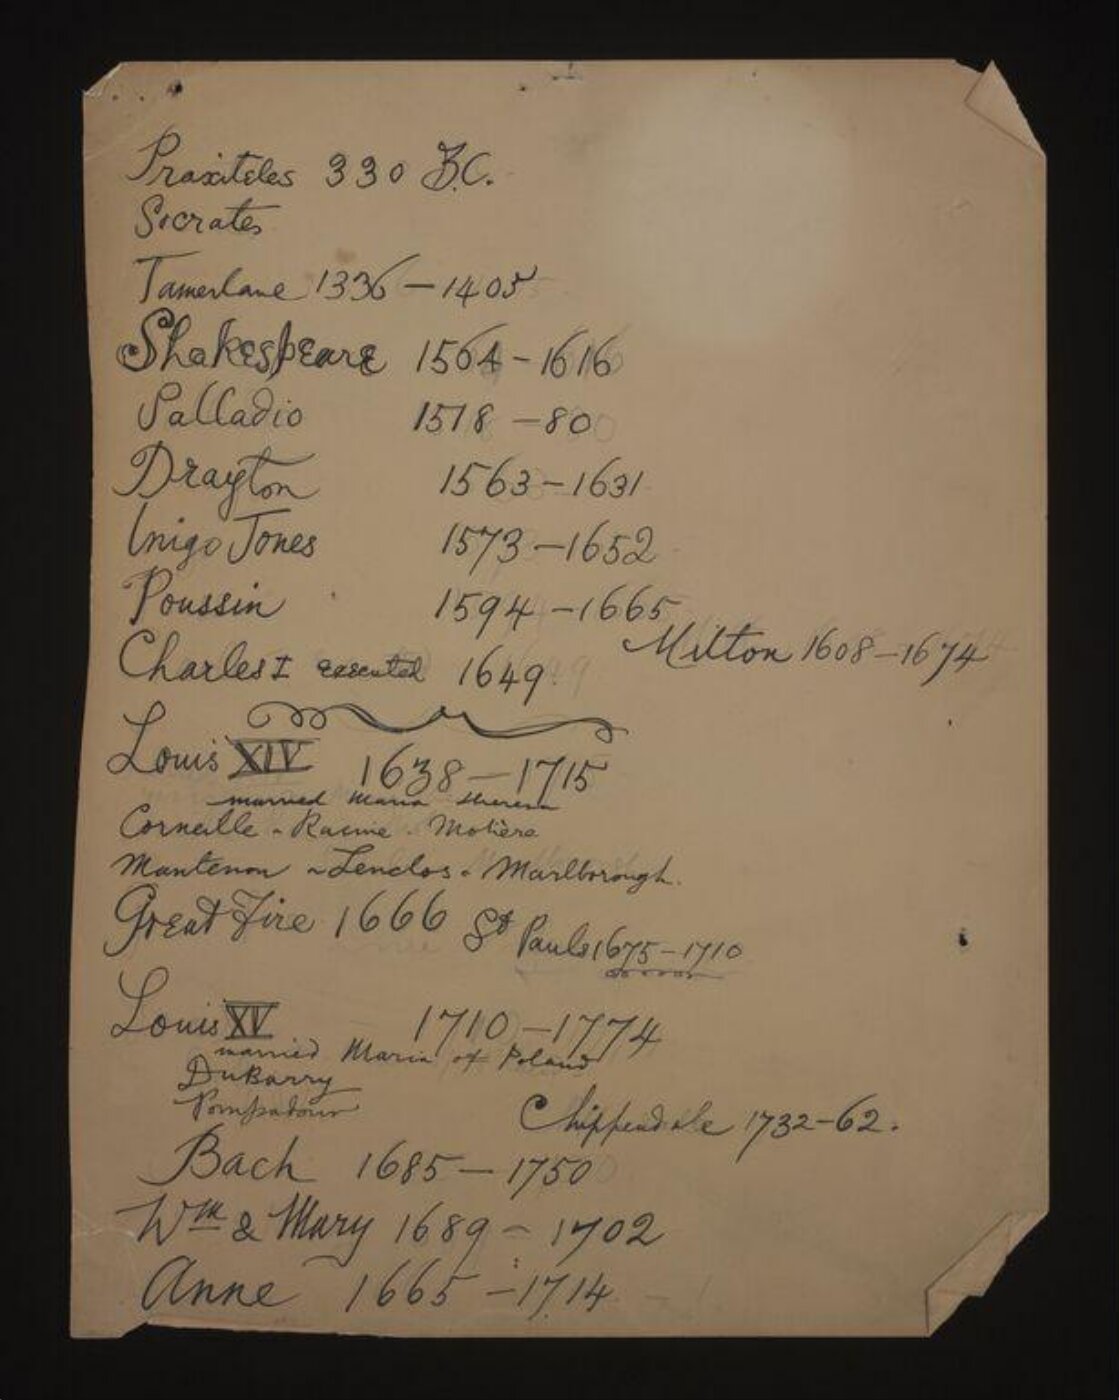 Praxiteles 330 B.C.
Socrates
Tamerlane 1336 – 1405
Shakespeare 1564 – 1616
Palladio 1518 – 80
Drayton 1563 – 1631
Inigo Jones 1573 – 1652
Poussin 1594 – 1665
Milton 1608 – 1674
Charles I executed 1649
Louis XIV 1638 – 1715
married Maria Theresa
Corneille - Racine - Molière
Mantenon - Lenclos - Marlborough.
Great Fire 1666 St Pauls 1675 – 1710
Louis XV 1710 – 1774
married Maria of Poland
DuBarry
Pompadour
Chippendale 1732 – 62.
Bach 1685 – 1750
Wm & Mary 1689 – 1702
Anne 1665 – 1714